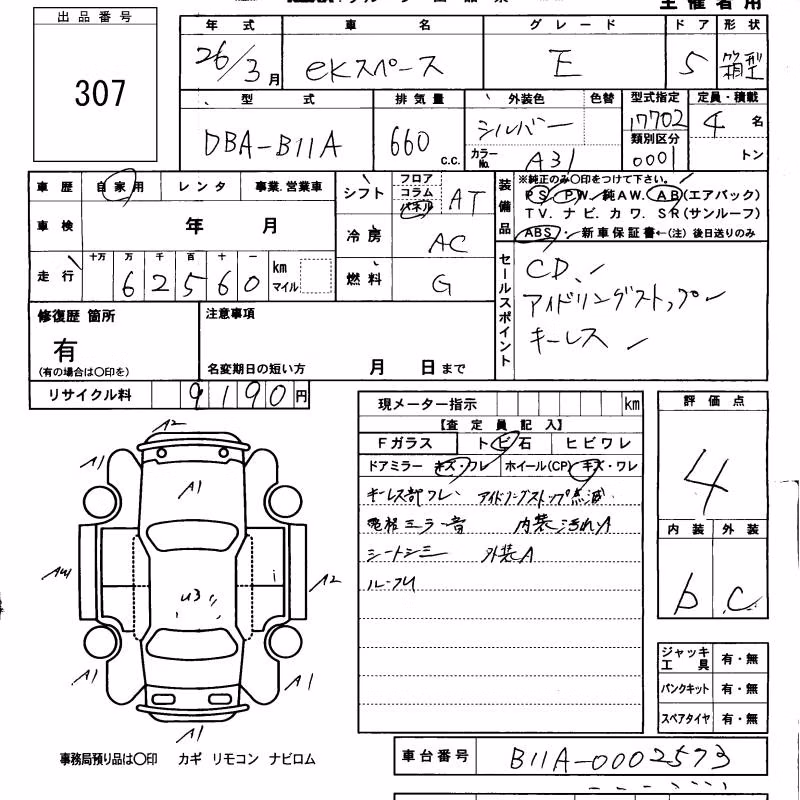 出品番号
307
年式 車名 グレード ドア 形状
26/3月 eKスペース E 5 箱型
型式 排気量 外装色 色替 型式指定 定員・積載
DBA-B11A 660 c.c. シルバー 17702 4名
カラーNo. A31 類別区分 0001 トン
車歴 自家用 レンタ 事業.営業車
シフト フロア コラム パネル AT
装備品 ※純正のみ○印をつけて下さい。
PS. PW. 純AW. AB(エアバック)
TV. ナビ. カワ. SR(サンルーフ)
ABS. 新車保証書←(注) 後日送りのみ
車検 年 月
冷房 AC
走行 十万 万 千 百 十 一
62560 km マイル
燃料 G
セールスポイント
CD
アイドリングストップ
キーレス
修復歴 箇所
有
(有の場合は○印を)
注意事項
名変期日の短い方 月 日まで
リサイクル料 9190円
現メーター指示 km
【査定員記入】
Fガラス トビ石 ヒビワレ
ドアミラー キズ・ワレ ホイール(CP) キズ・ワレ
キーレス部ワレ アイドリングストップ点滅
電格ミラー音 内装汚れA
シートシミ 外装A
評価点
4
内装 外装
b C
A2
A1
A1
A1
AW
U3
A2
A1
A1
A1
ジャッキ工具 有・無
パンクキット 有・無
スペアタイヤ 有・無
事務局預り品は○印 カギ リモコン ナビロム
車台番号 B11A-0002573